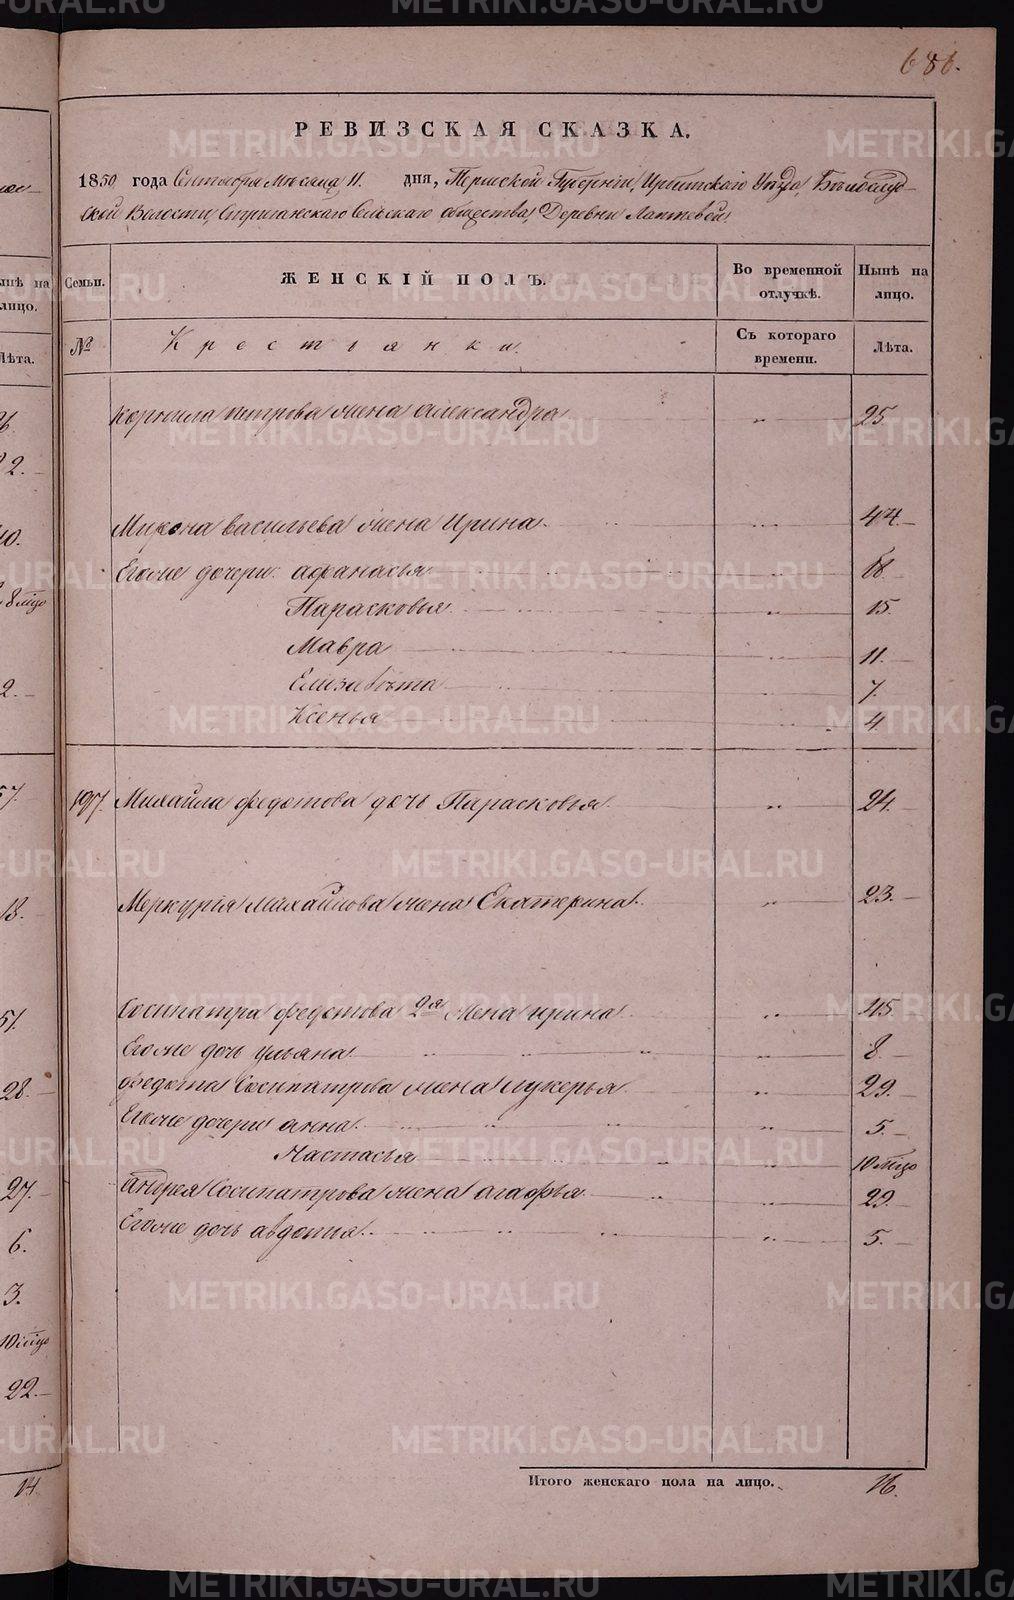 686.
РЕВИЗСКАЯ СКАЗКА.
1850 года Сентября Мѣсяца 11. дня, Пермской Губерніи, Ирбитскаго Уѣзда, Бѣлослуд-
ской Волости, Стриганскаго Сельскаго общества, Деревни Лаптевой.
Семьи. ЖЕНСКІЙ ПОЛЪ. Во временной отлучкѣ. Нынѣ на лицо.
№ Крестьянки. Съ котораго времени. Лѣта.
Корнила петрова жена александра „ 25
Мирона васильева жена Ирина. 44
Его же дочери: афанасья 18
Парасковья 15
Мавра 11.
Елизавѣта 7.
Ксенья 4.
197. Михайла федотова дочь Парасковья 24.
Меркурія михайлова жена Екатерина. 23.
Сосипатра федотова 2я жена ирина 45
Его же дочь ульяна 8
федота Сосипатрова жена лукерья 29.
Его же дочери анна 5.
Настасья 10 мцо
андрея Сосипатрова жена агафья 29.
Его же дочь авдотья 5.
Итого женскаго пола на лицо. 16.
ынѣ на
лицо.
Лѣта.
22.
40.
8 мцо
2.
57.
18.
51.
28.
27.
6.
3.
10 мцо
22.
14.
METRIKI.GASO-URAL.RU